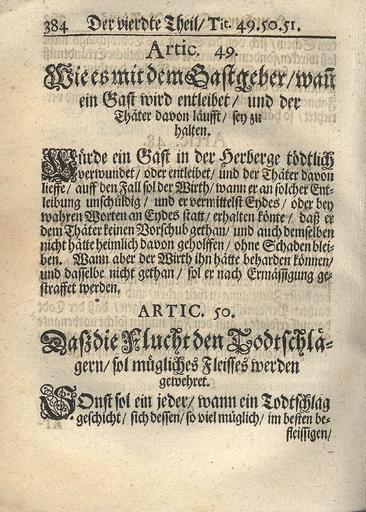 384 Der vierdte Theil/ Tit. 49.50.51.
Artic. 49.
Wie es mit dem Gastgeber/ wañ
ein Gast wird entleibet/ und der
Thäter davon läufft/ sey zu
halten.
Würde ein Gast in der Herberge tödtlich
verwundet/ oder entleibet/ und der Thäter davon
lieffe/ auff den Fall sol der Wirth/ wann er an solcher Ent-
leibung unschüldig/ und er vermittelst Eydes/ oder bey
wahren Worten an Eydes statt/ erhalten könte/ daß er
dem Thäter keinen Vorschub gethan/ und auch demselben
nicht hätte heimlich davon geholffen/ ohne Schaden blei-
ben. Wann aber der Wirth ihn hätte beharden können/
und dasselbe nicht gethan/ sol er nach Ermässigung ge-
straffet werden.
ARTIC. 50.
Daß die Flucht den Todtschlä-
gern/ sol mügliches Fleisses werden
gewehret.
Sonst sol ein jeder/ wann ein Todtschlag
geschicht/ sich dessen/ so viel müglich/ im besten be-
fleissigen/